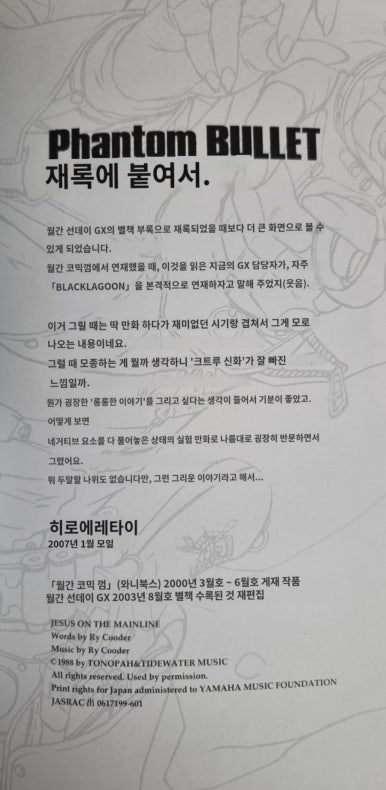 Phantom BULLET
재록에 붙여서.
월간 선데이 GX의 별책 부록으로 재록되었을 때보다 더 큰 화면으로 볼 수
있게 되었습니다.
월간 코믹껌에서 연재했을 때, 이것을 읽은 지금의 GX 담당자가, 자주
「BLACKLAGOON」을 본격적으로 연재하자고 말해 주었지(웃음).
이거 그릴 때는 딱 만화 하다가 재미없던 시기랑 겹쳐서 그게 모로
나오는 내용이네요.
그럴 때 모종하는 게 뭘까 생각하니 '크트루 신화'가 잘 빠진
느낌일까.
뭔가 굉장한 '롱롱한 이야기'를 그리고 싶다는 생각이 들어서 기분이 좋았고.
어떻게 보면
네거티브 요소를 다 풀어놓은 상태의 실험 만화로 나름대로 굉장히 반문하면서
그렸어요.
뭐 두말할 나위도 없습니다만, 그런 그리운 이야기라고 해서...
히로에레타이
2007년 1월 모일
「월간 코믹 껌」(와니북스) 2000년 3월호 ~ 6월호 게재 작품
월간 선데이 GX 2003년 8월호 별책 수록된 것 재편집
JESUS ON THE MAINLINE
Words by Ry Cooder
Music by Ry Cooder
©1988 by TONOPAH&TIDEWATER MUSIC
All rights reserved. Used by permission.
Print rights for Japan administered to YAMAHA MUSIC FOUNDATION
JASRAC 出 0617199-601